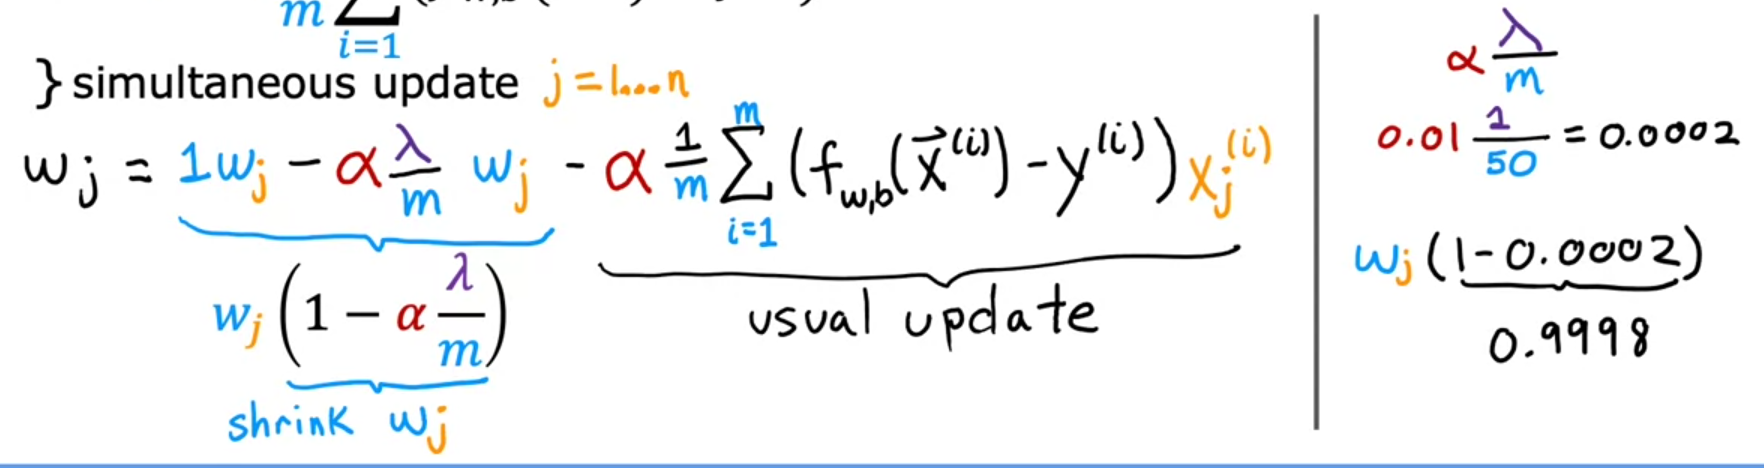 m ∑ i=1
} simultaneous update j = 1...n
w_j = 1w_j − α λ/m w_j − α 1/m ∑_{i=1}^{m} (f_{w,b}(x⃗^{(i)}) − y^{(i)}) x_j^{(i)}
w_j (1 − α λ/m)
usual update
shrink w_j
α λ/m
0.01 1/50 = 0.0002
w_j (1 − 0.0002)
0.9998